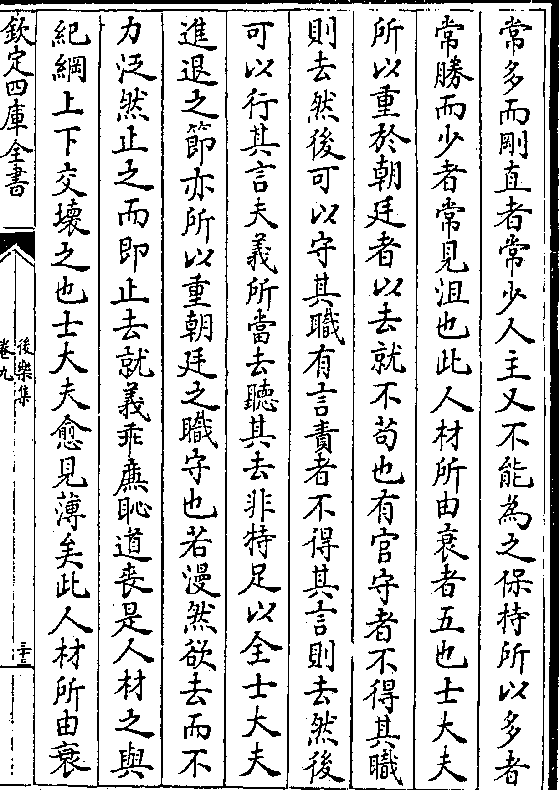 常多而剛直者常少人主又不能為之保持所以多者
常勝而少者常見沮也此人材所由衰者五也士大夫
所以重於朝廷者以去就不苟也有官守者不得其職
則去然後可以守其職有言責者不得其言則去然後
可以行其言夫義所當去聽其去非特足以全士大夫
進退之節亦所以重朝廷之職守也若漫然欲去而不
力泛然止之而即止去就義乖廉恥道喪是人材之與
紀綱上下交壞之也士大夫愈見薄矣此人材所由衰
欽定四庫全書
後樂集
卷九
三十三